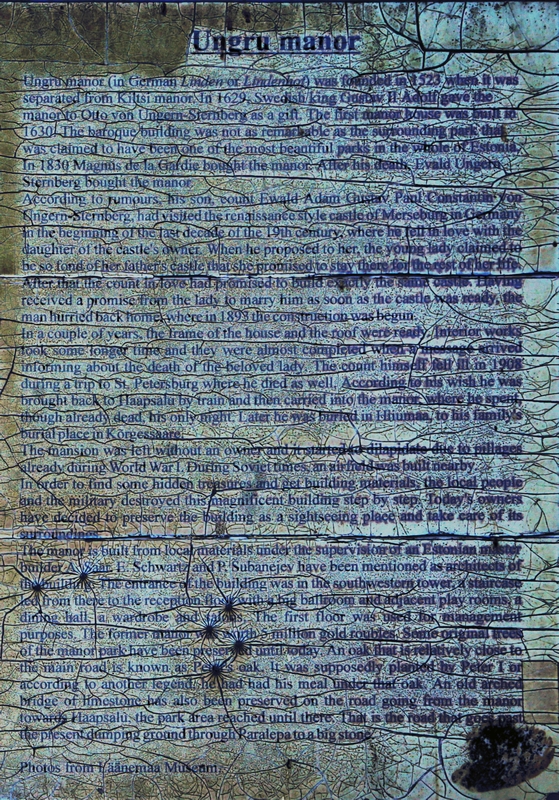 Ungru manor
Ungru manor (in German Linden or Lindenhof) was founded in 1523 when it was
separated from Kiltsi manor. In 1629, Swedish king Gustav II Adolf gave the
manor to Otto von Ungern-Sternberg as a gift. The first manor house was built in
1630. The baroque building was not as remarkable as the surrounding park that
was claimed to have been one of the most beautiful parks in the whole of Estonia.
In 1830 Magnus de la Gardie bought the manor. After his death, Evald Ungern-
Sternberg bought the manor.
According to rumours, his son, count Ewald Adam Gustav Paul Constantin von
Ungern-Sternberg, had visited the renaissance style castle of Merseburg in Germany
in the beginning of the last decade of the 19th century, where he fell in love with the
daughter of the castle's owner. When he proposed to her, the young lady claimed to
be so fond of her father's castle that she promised to stay there for the rest of her life.
After that the count in love had promised to build exactly the same castle. Having
received a promise from the lady to marry him as soon as the castle was ready, the
man hurried back home, where in 1893 the construction was begun.
In a couple of years, the frame of the house and the roof were ready. Interior works
took some longer time and they were almost completed when a message arrived
informing about the death of the beloved lady. The count himself fell ill in 1908
during a trip to St. Petersburg where he died as well. According to his wish he was
brought back to Haapsalu by train and then carried into the manor, where he spent,
though already dead, his only night. Later he was buried in Hiiumaa, to his family's
burial place in Kõrgessaare.
The mansion was left without an owner and it started to dilapidate due to pillages
already during World War I. During Soviet times, an airfield was built nearby.
In order to find some hidden treasures and get building materials, the local people
and the military destroyed this magnificent building step by step. Today's owners
have decided to preserve the building as a sightseeing place and take care of its
surroundings.
The manor is built from local materials under the supervision of an Estonian master
builder. E. Schwartz and P. Subanejev have been mentioned as architects of
the building. The entrance of the building was in the southwestern tower, a staircase
led from there to the reception floor with a big ballroom and adjacent play rooms, a
dining hall, a wardrobe and The first floor was used for management
purposes. The former manor 5 million gold roubles. Some original trees
of the manor park have been preserved until today. An oak that is relatively close to
the main road is known as Peter's oak. It was supposedly planted by Peter I or
according to another legend, he had had his meal under that oak. An old arched
bridge of limestone has also been preserved on the road going from the manor
towards Haapsalu; the park area reached until there. That is the road that goes past
the present dumping ground through Paralepa to a big stone.
Photos from Läänemaa Museum.